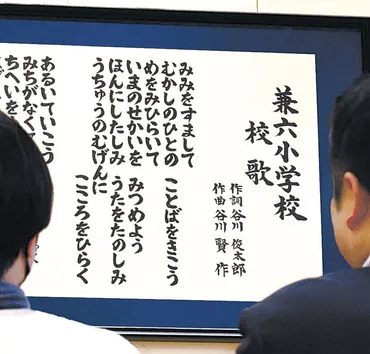 兼六小学校
校歌
作詞 谷川 俊太郎
作曲 谷川 賢作
みみをすまして
むかしのひとの ことばをきこう
めをみひらいて
いまのせかいを みつめよう
ほんにしたしみ うたをたのしみ
うちゅうのむげんに
こころをひらく
あるいていこう
みちがなくて
ちへいを